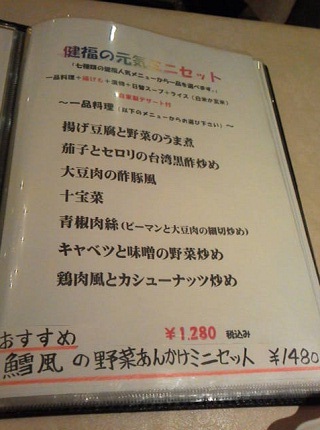 健福の元気ミニセット
「七種類の健福人気メニューから一品を選べます。」
一品料理+揚げもの+漬物+日替スープ+ライス(白米か玄米)
自家製デザート付
〜一品料理(以下のメニューからお選び下さい)〜
揚げ豆腐と野菜のうま煮
茄子とセロリの台湾黒酢炒め
大豆肉の酢豚風
十宝菜
青椒肉絲(ピーマンと大豆肉の細切炒め)
キャベツと味噌の野菜炒め
鶏肉風とカシューナッツ炒め
¥1,280 税込み
おすすめ
鱈風の野菜あんかけミニセット ¥1480